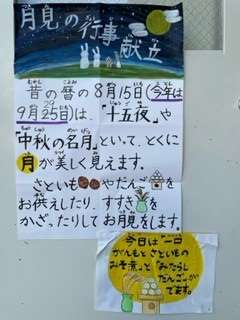 月見の行事献立
昔の暦の8月15日(今年は
9月25日)は、「十五夜」や
「中秋の名月」といって、とくに
月が美しく見えます。
さといもやだんごを
お供えしたり、すすきを
かざったりしてお月見をします。
今日は「一口
がんもとさといもの
みそ煮」と「みたらし
だんご」が
でます。